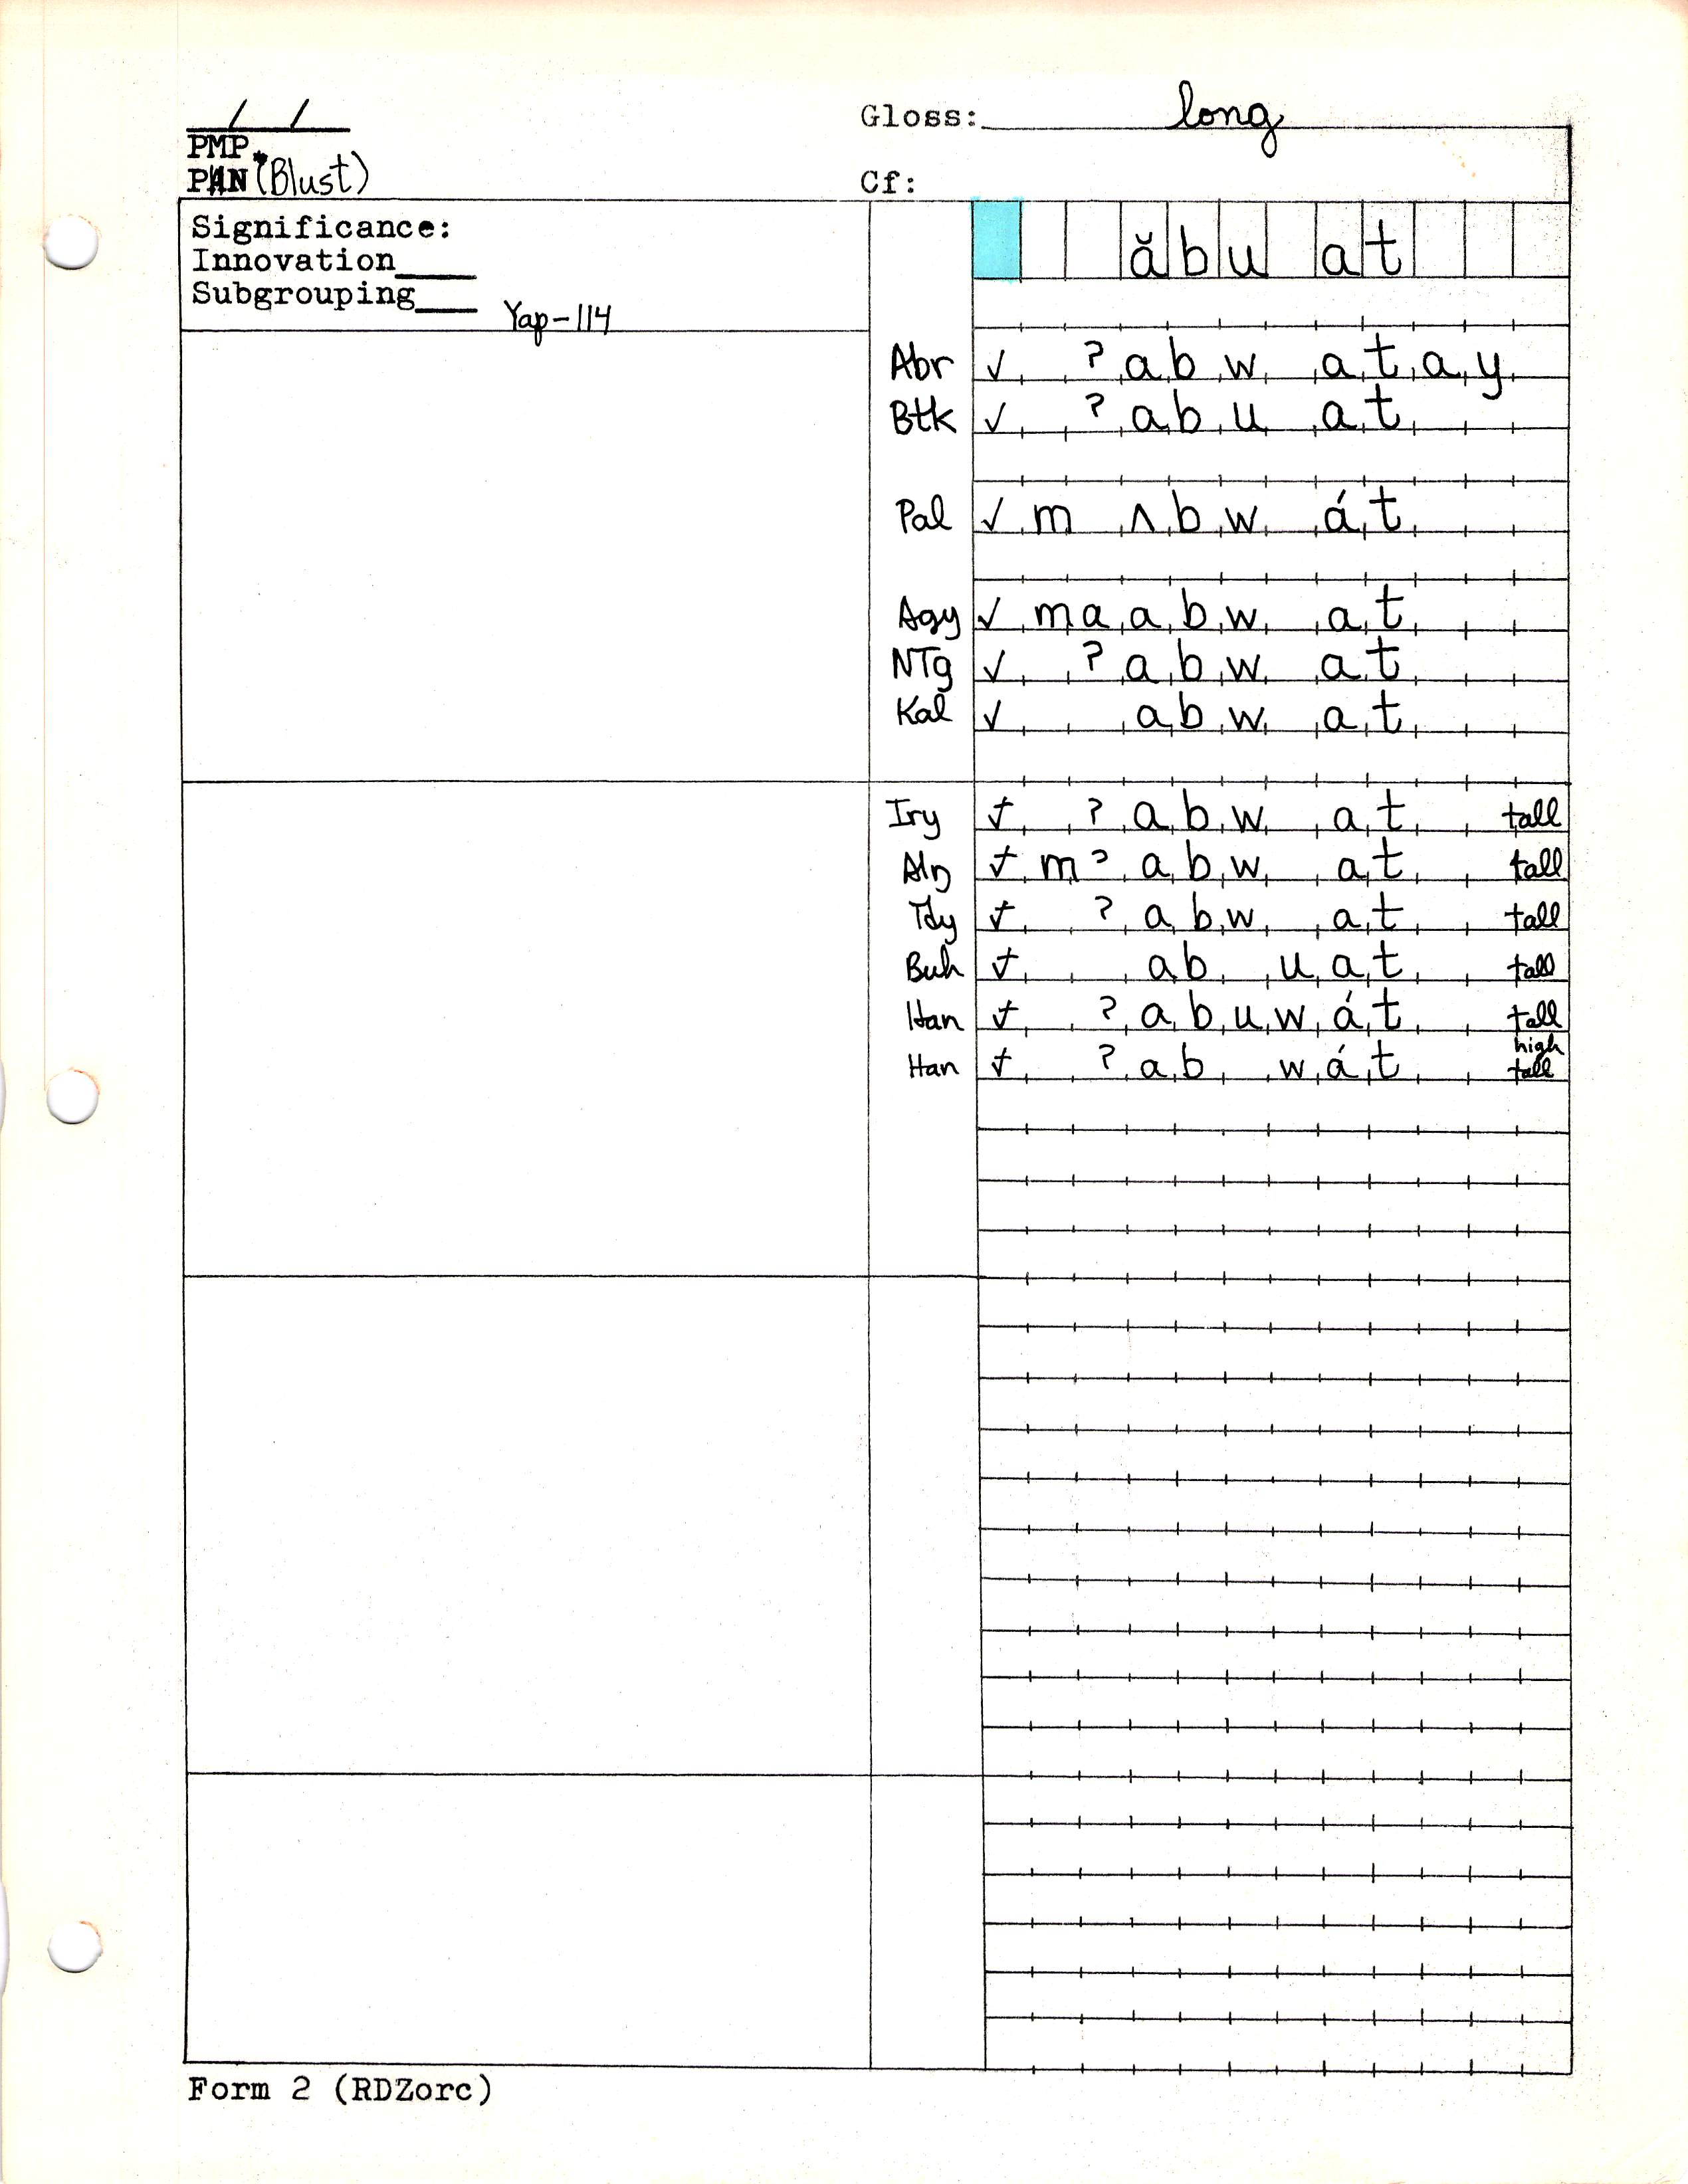 / /
Gloss: long
PMP
PAN *(Blust)
Cf:
Significance:
Innovation____
Subgrouping____
Yap-114
ăbuat
Abr ✓ ʔabwatay
Btk ✓ ʔabuat
Pal ✓ mʌbwát
Agy ✓ maabwat
NTg ✓ ʔabwat
Kal ✓ abwat
Iry ✓ ʔabwat tall
Aln ✓ mʔabwat tall
Tdy ✓ ʔabwat tall
Buh ✓ abuat tall
Han ✓ ʔabuwát tall
Han ✓ ʔabwát high tall
Form 2 (RDZorc)